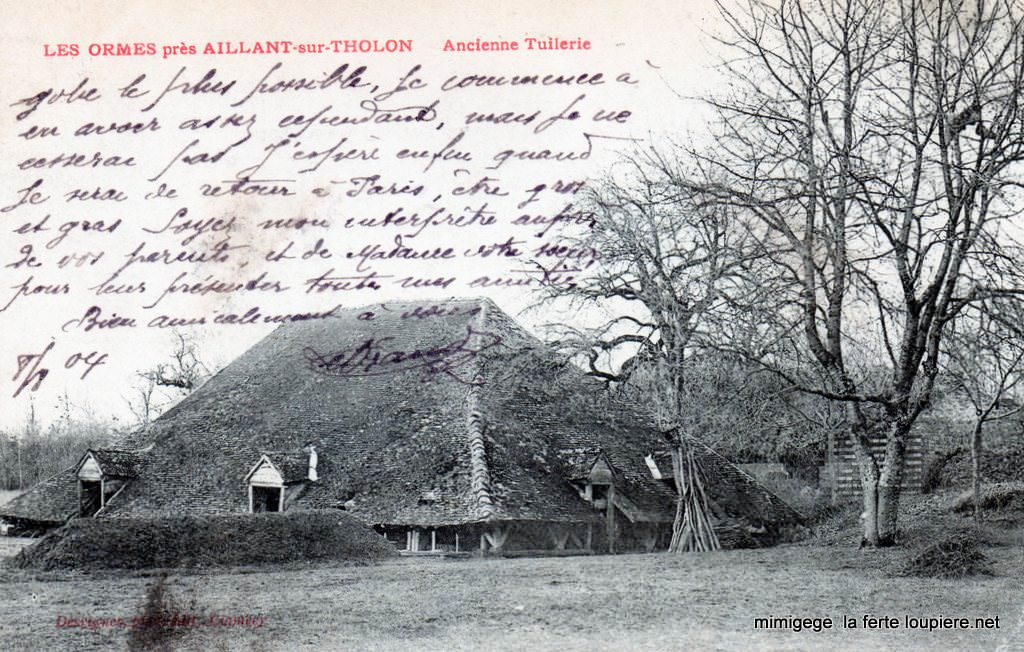 LES ORMES près AILLANT-sur-THOLON Ancienne Tuilerie
gobe le plus possible, Je commence à
en avoir assez cependant, mais Je ne
cesserai pas J'espère enfin quand
Je serai de retour à Paris, être gros
et gras Soyez mon interprête auprès
de vos parents, et de Madame votre
pour leur présenter toutes mes amitiés
Bien amicalement à vous
04
Desvignes,
mimigege la ferte loupiere.net